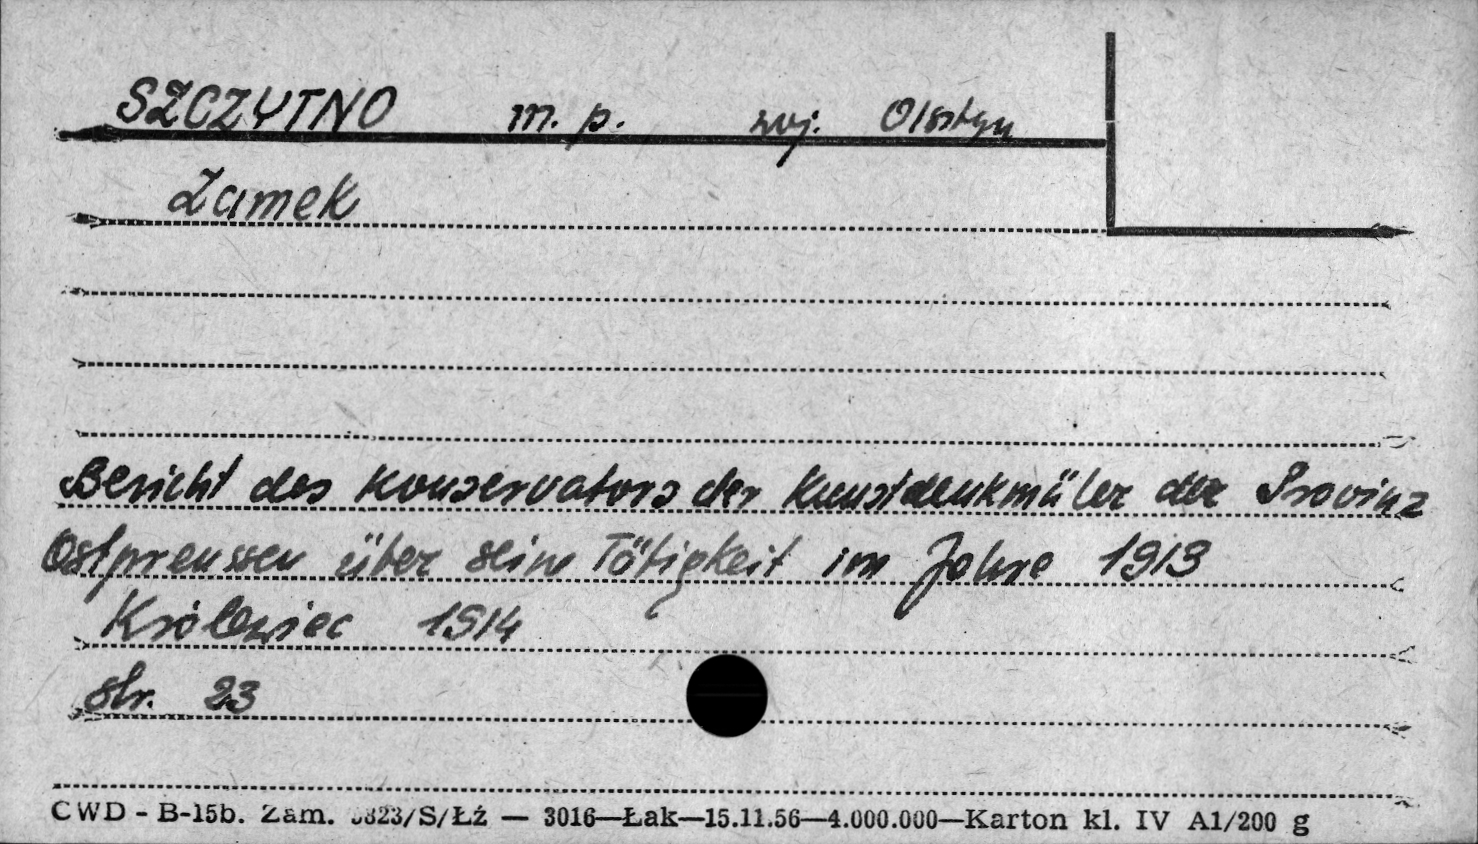 SZCZYTNO m. p. woj. Olsztyn
Zamek
Bericht des Konservators der Kunstdenkmäler der Provinz
Ostpreussen über seine Tätigkeit im Jahre 1913
Królewiec 1914
str. 23
CWD - B-15b. Zam. 3823/S/Łź — 3016—Łak—15.11.56—4.000.000—Karton kl. IV A1/200 g